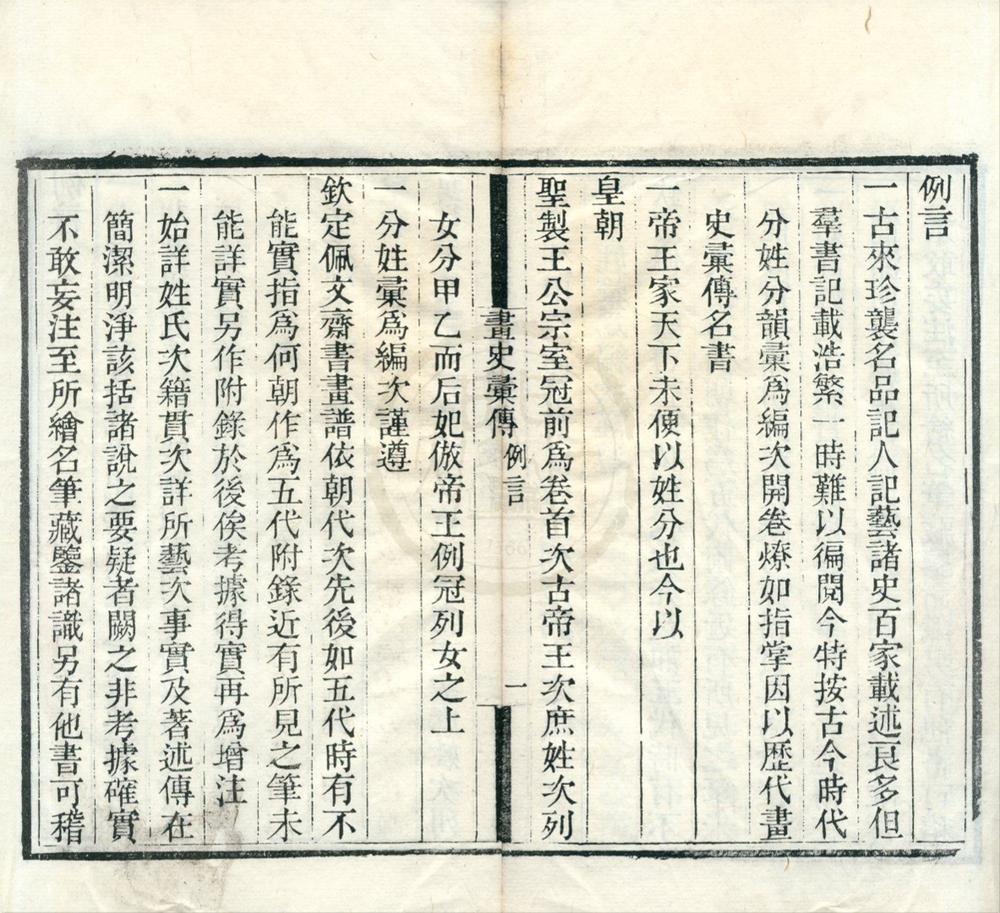 例言
一古來珍襲名品記人記藝諸史百家載述良多但
羣書記載浩繁一時難以徧閱今特按古今時代
分姓分韻彙爲編次開卷燎如指掌因以歷代畫
史彙傳名書
一帝王家天下未便以姓分也今以
皇朝
聖製王公宗室冠前爲卷首次古帝王次庶姓次列
畫史彙傳 例言 一
女分甲乙而后妃倣帝王例冠列女之上
一分姓彙爲編次謹遵
欽定佩文齋書畫譜依朝代次先後如五代時有不
能實指爲何朝作爲五代附錄近有所見之筆未
能詳實另作附錄於後俟考據得實再爲增注
一始詳姓氏次籍貫次詳所藝次事實及著述傳在
簡潔明淨該括諸說之要疑者闕之非考據確實
不敢妄注至所繪名筆藏鑒諸識另有他書可稽